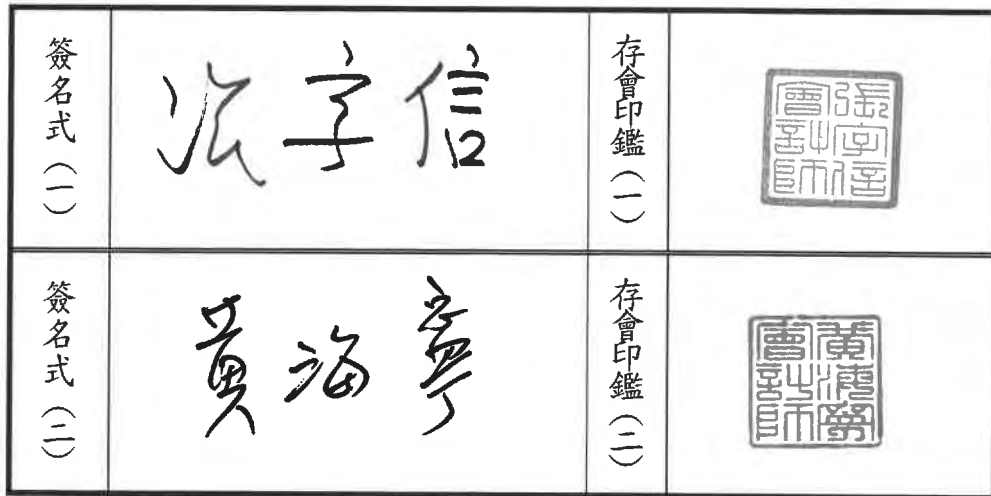 簽名式（一）
張字信
存會印鑑（一）
張字信會計師
簽名式（二）
黃海寧
存會印鑑（二）
黃海寧會計師